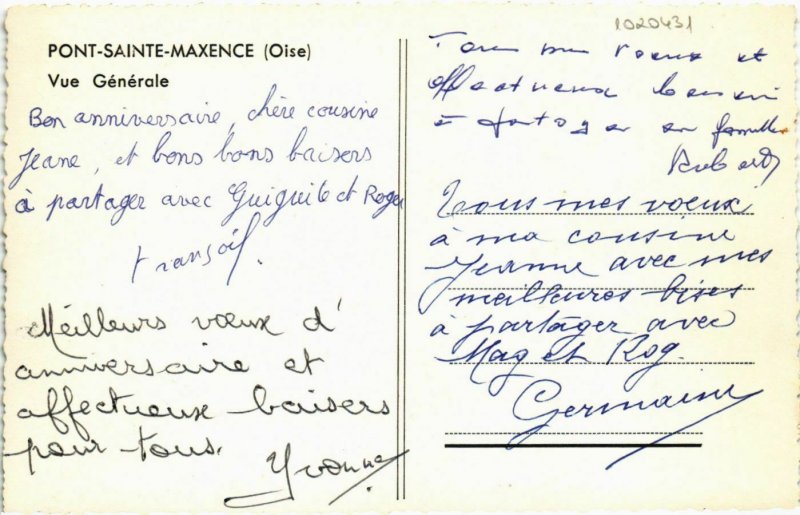 PONT-SAINTE-MAXENCE (Oise)
Vue Générale
Bon anniversaire, chère cousine
Jeane, et bons bons baisers
à partager avec Guiguite et Roger
Meilleurs vœux d'
anniversaire et
affectueux baisers
pour tous.
Yvonne
1020431
Tous mes voeux et
affectueux baisers
à partager en famille
Robert
Tous mes vœux
à ma cousine
Jeanne avec mes
meilleures bises
à partager avec
Mag et Rog.
Germaine